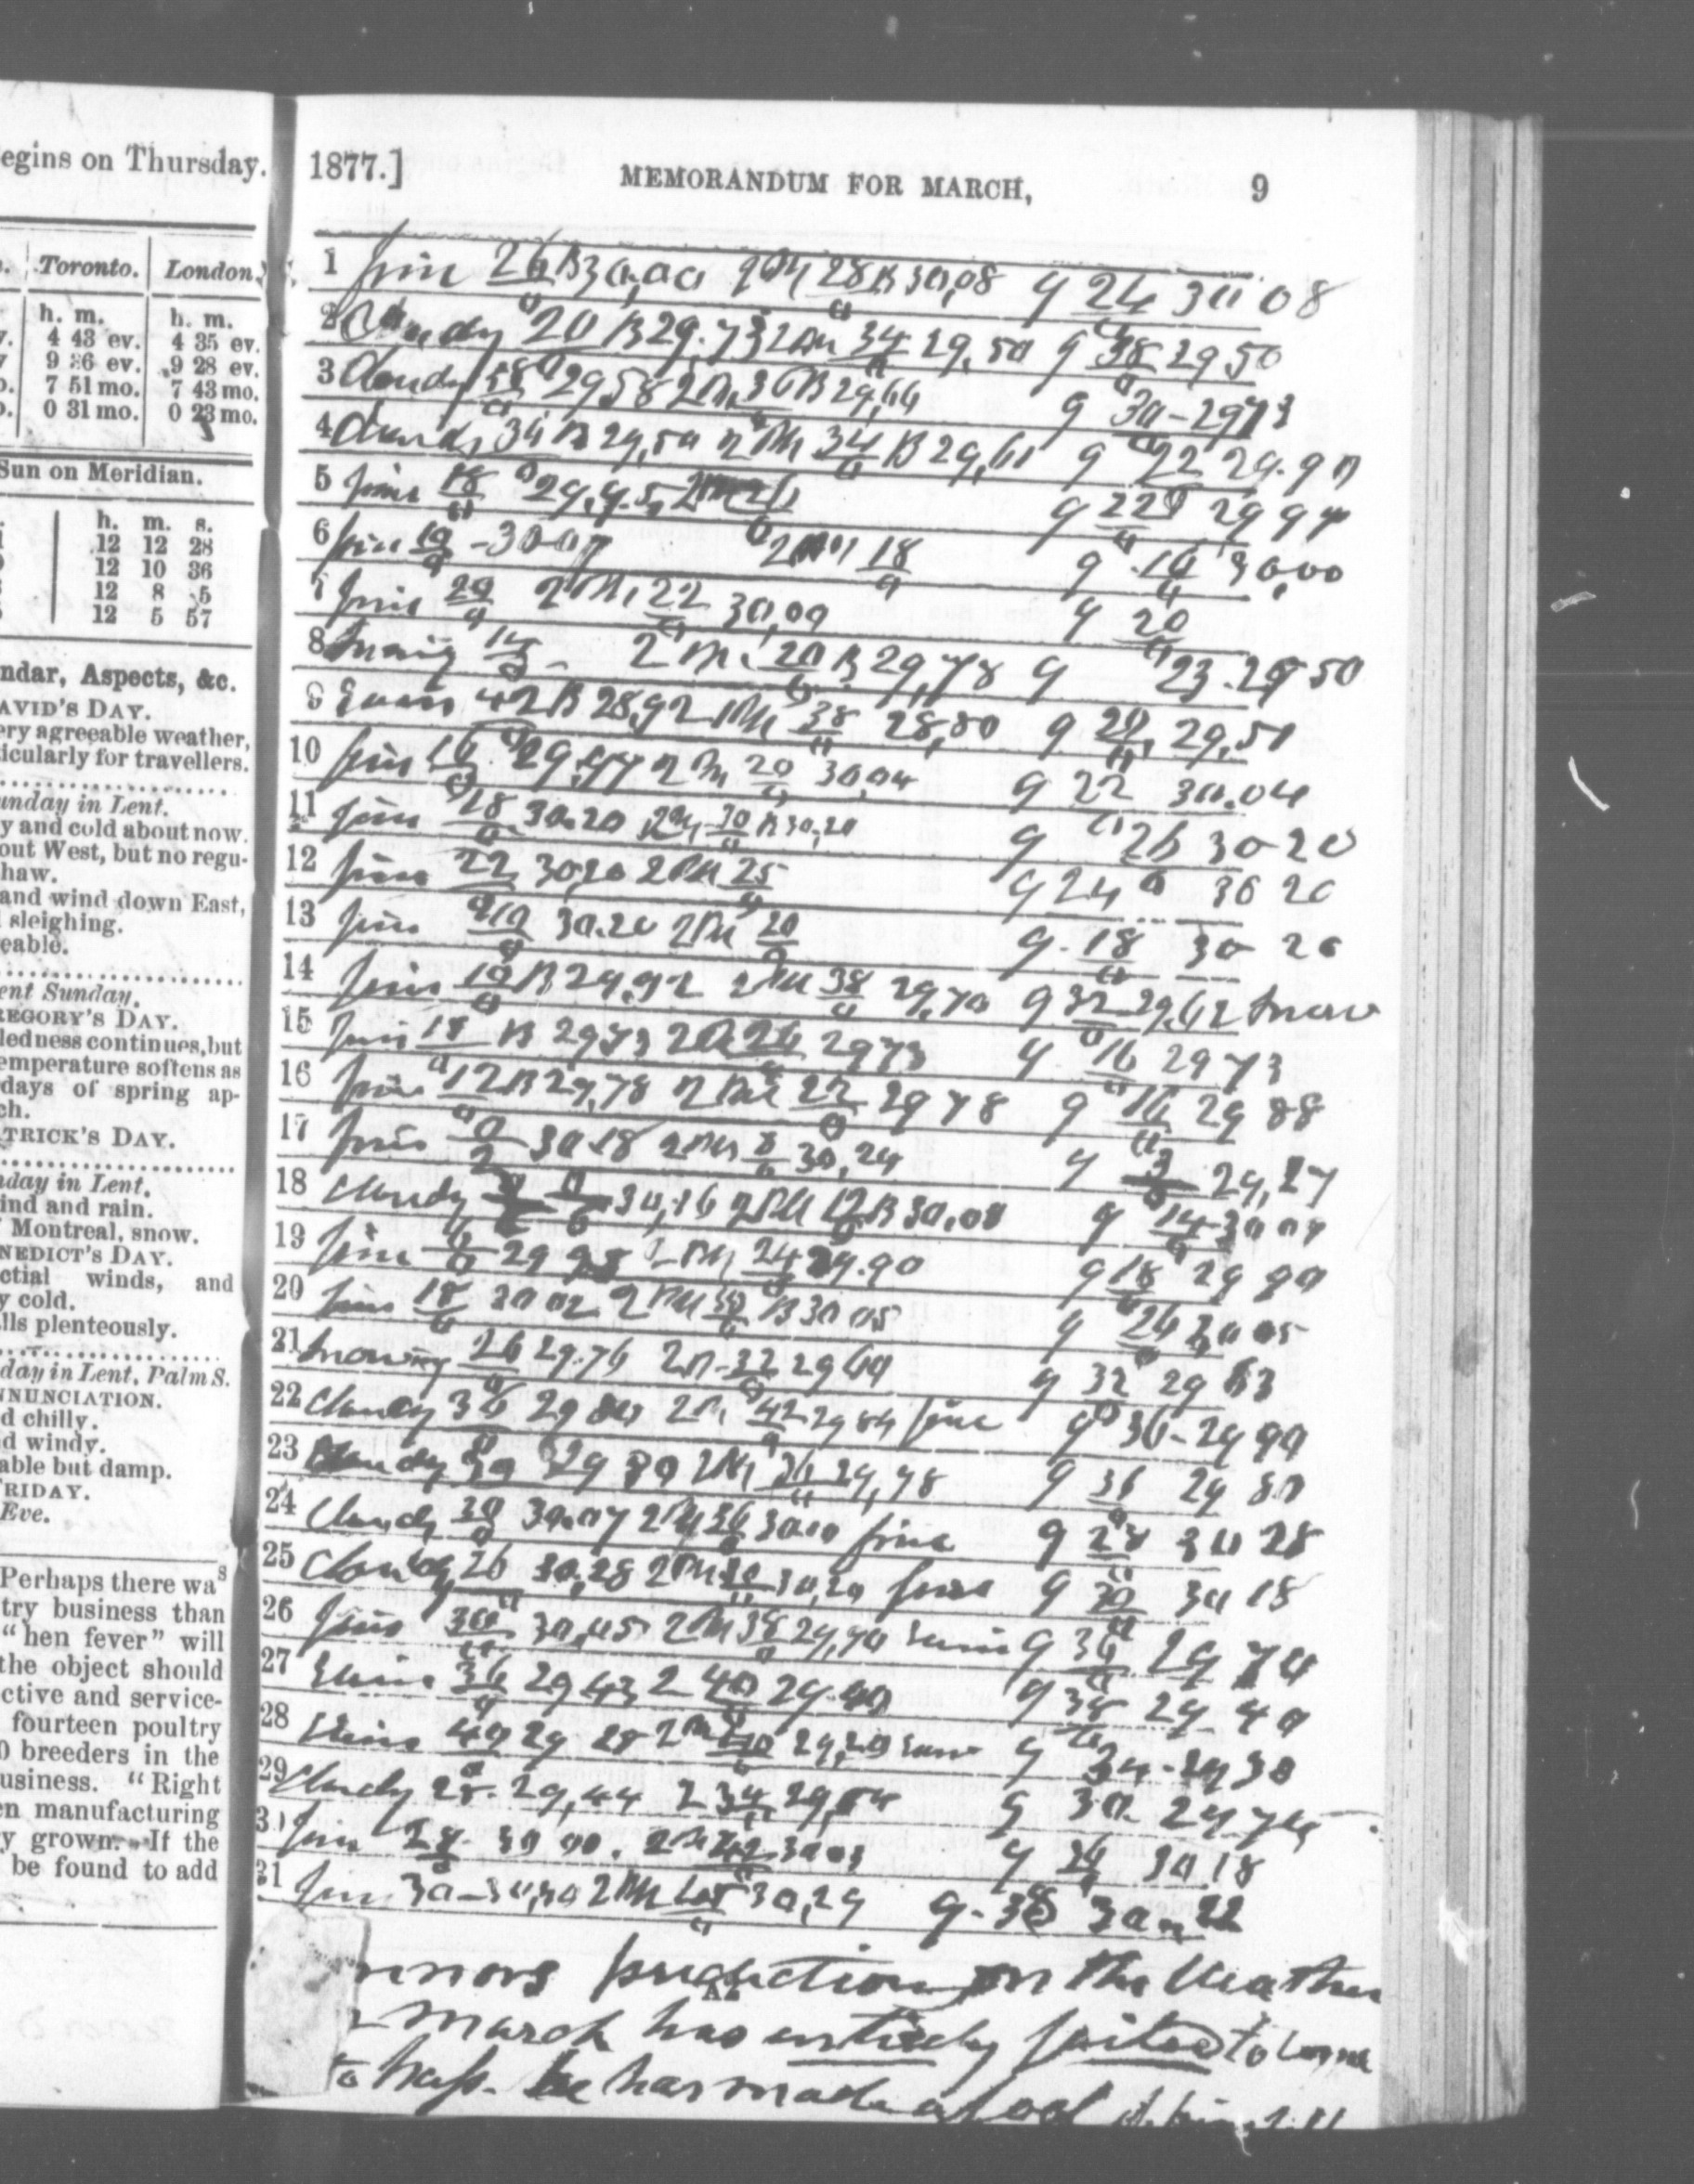 egins on Thursday.
Toronto. London.
h. m. h. m.
4 43 ev. 4 35 ev.
9 36 ev. 9 28 ev.
7 51 mo. 7 43 mo.
0 31 mo. 0 23 mo.
Sun on Meridian.
h. m. s.
12 12 28
12 10 36
12 8 5
12 5 57
ndar, Aspects, &c.
AVID'S DAY.
ery agreeable weather,
ticularly for travellers.
unday in Lent.
y and cold about now.
out West, but no regu-
haw.
and wind down East,
sleighing.
eable.
ent Sunday.
REGORY'S DAY.
ledness continues, but
emperature softens as
days of spring ap-
ch.
TRICK'S DAY.
nday in Lent.
ind and rain.
Montreal, snow.
NEDICT'S DAY.
ctial winds, and
y cold.
lls plenteously.
day in Lent, Palm S.
NUNCIATION.
d chilly.
d windy.
able but damp.
RIDAY.
Eve.
Perhaps there was
try business than
"hen fever" will
the object should
ctive and service-
fourteen poultry
0 breeders in the
usiness. "Right
en manufacturing
y grown. If the
be found to add
1877.] MEMORANDUM FOR MARCH, 9
1 fine 26 B 30,00 2 PM 28 B 30,08 9 24 30 08
2 Cloudy 20 B 29.73 2 PM 34 29,50 9 38 29 50
3 Cloudy 29 58 2 PM 36 B 29,64 9 30 - 29 73
4 Cloudy 34 B 29,50 2 PM 34 B 29,61 9 22 29.90
5 fine 18 29,95 9 22 29 94
6 fine 10 - 30 07 2 PM 18 9 10 30,00
7 fine 20 2 PM 22 30,09 9 20
8 2 PM 20 B 29,78 9 23 29 50
9 42 B 28,92 PM 38 28,80 9 20 29,50
10 fine 16 29,97 2 PM 20 30,04 9 22 30.04
11 fine 18 30.20 2 PM 30 B 30,20 9 26 30 20
12 fine 22 30,20 2 PM 25 9 24 30 20
13 fine 10 30.20 2 PM 20 9 18 30 20
14 fine 10 B 29,92 2 PM 38 29,70 9 32 29,62 snow
15 fine 18 B 29 73 2 PM 26 29 73 9 16 29 73
16 fine 12 B 29,78 2 PM 22 29 78 9 16 29 88
17 fine 0 30.18 2 PM 8 30,24 9 3 29,27
18 Cloudy 30,16 2 PM 12 B 30,00 9 14 30 04
19 fine 6 29 2 PM 24 29.90 9 18 29 90
20 fine 18 30 02 2 PM B 30 05 9 26 30 05
21 Snowing 26 29.76 2 PM 32 29 60 9 32 29 63
22 Cloudy 36 29 2 PM 42 29 84 fine 9 36 - 29 90
23 Cloudy 30 29 80 2 PM 36 29,78 9 36 29 80
24 Cloudy 30 30.07 2 PM 36 30 10 fine 9 28 30 28
25 Cloudy 26 30,28 2 PM 30 30,20 fine 9 30 30 18
26 fine 30 30,05 2 PM 38 29,90 9 36 29 74
27 36 29 43 2 40 29.40 9 38 29 40
28 40 29 28 2 PM 29,20 9 34 - 29 30
29 Cloudy 28. 29,44 2 34 29,54 9 30 29.75
30 fine 28 30 00. 2 PM 42 30 03 9 36 30 18
31 fine 30 - 30,30 2 PM 45 30,29 9 - 38 30 22
prediction on the Weather
March has entirely failed to come
to pass. he has made a fool of himself